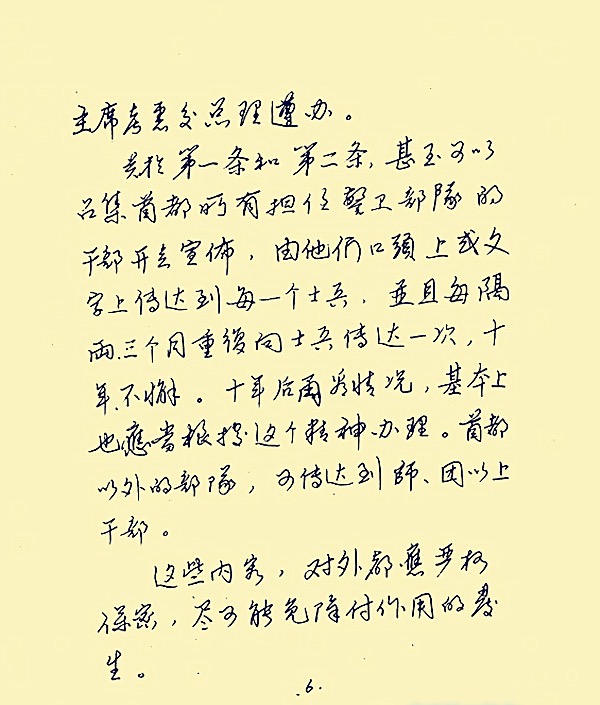 主席考慮交总理遵办。
关於第一条和第二条，甚至可以
召集首都所有担任警卫部隊的
干部开会宣佈，由他们口頭上或文
字上传达到每一个士兵，並且每隔
兩三个月重復向士兵传达一次，十
年不懈。十年后再看情况，基本上
也應當根據这个精神办理。首都
以外的部隊，可传达到師、团以上
干部。
这些内容，对外都應严格
保密，尽可能免除付作用的發
生。
.6.